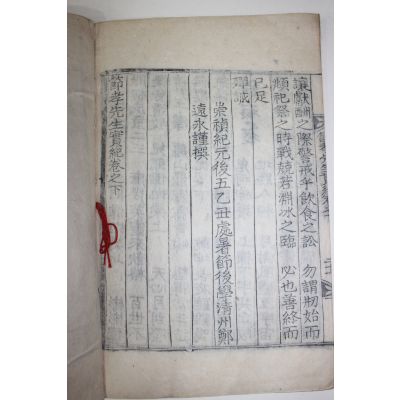 讓獻酬之際警戒乎飮食之訟 勿謂刱始而
頻祀祭之時戰兢若淵氷之臨 必也善終而
已足
殫誠
崇禎紀元後五乙丑處暑節後學淸州鄭
遠永謹撰
節孝先生實紀卷之下